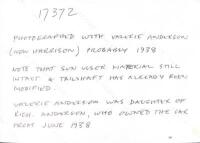 17372
PHOTOGRAPHED WITH VALERIE ANDERSON
(NOW HARRISON) PROBABLY 1938
NOTE THAT SUN VISER MATERIAL STILL
INTACT & TAILSHAFT HAS ALREADY BEEN
MODIFIED.
VALERIE ANDERSON WAS DAUGHTER OF
RICH. ANDERSON, WHO OWNED THE CAR
FROM JUNE 1938